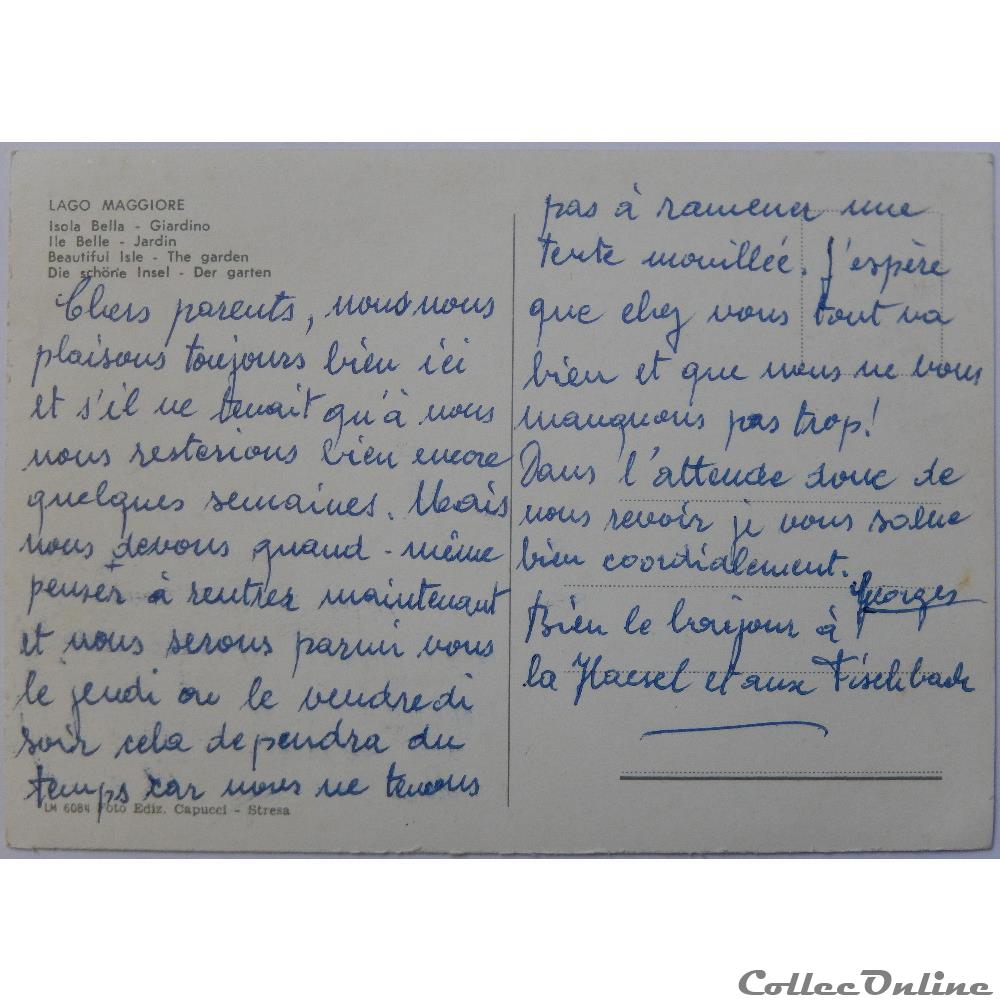 LAGO MAGGIORE
Isola Bella - Giardino
Ile Belle - Jardin
Beautiful Isle - The garden
Die schöne Insel - Der garten
Chers parents, nous nous
plaisons toujours bien ici
et s'il ne tenait qu'à nous
nous resterions bien encore
quelques semaines. Mais
nous devons quand-même
penser à rentrer maintenant
et nous serons parmi vous
le jeudi ou le vendredi
soir cela dependra du
temps car nous ne tenons
LM 6084 Foto Ediz. Capucci - Stresa
pas à ramener une
tente mouillée. J'espère
que chez vous tout va
bien et que nous ne vous
manquons pas trop!
Dans l'attende donc de
vous revoir je vous salue
bien coordialement.
Georges
Bien le bonjour à
la Haesel et aux Fischbach
CollecOnline